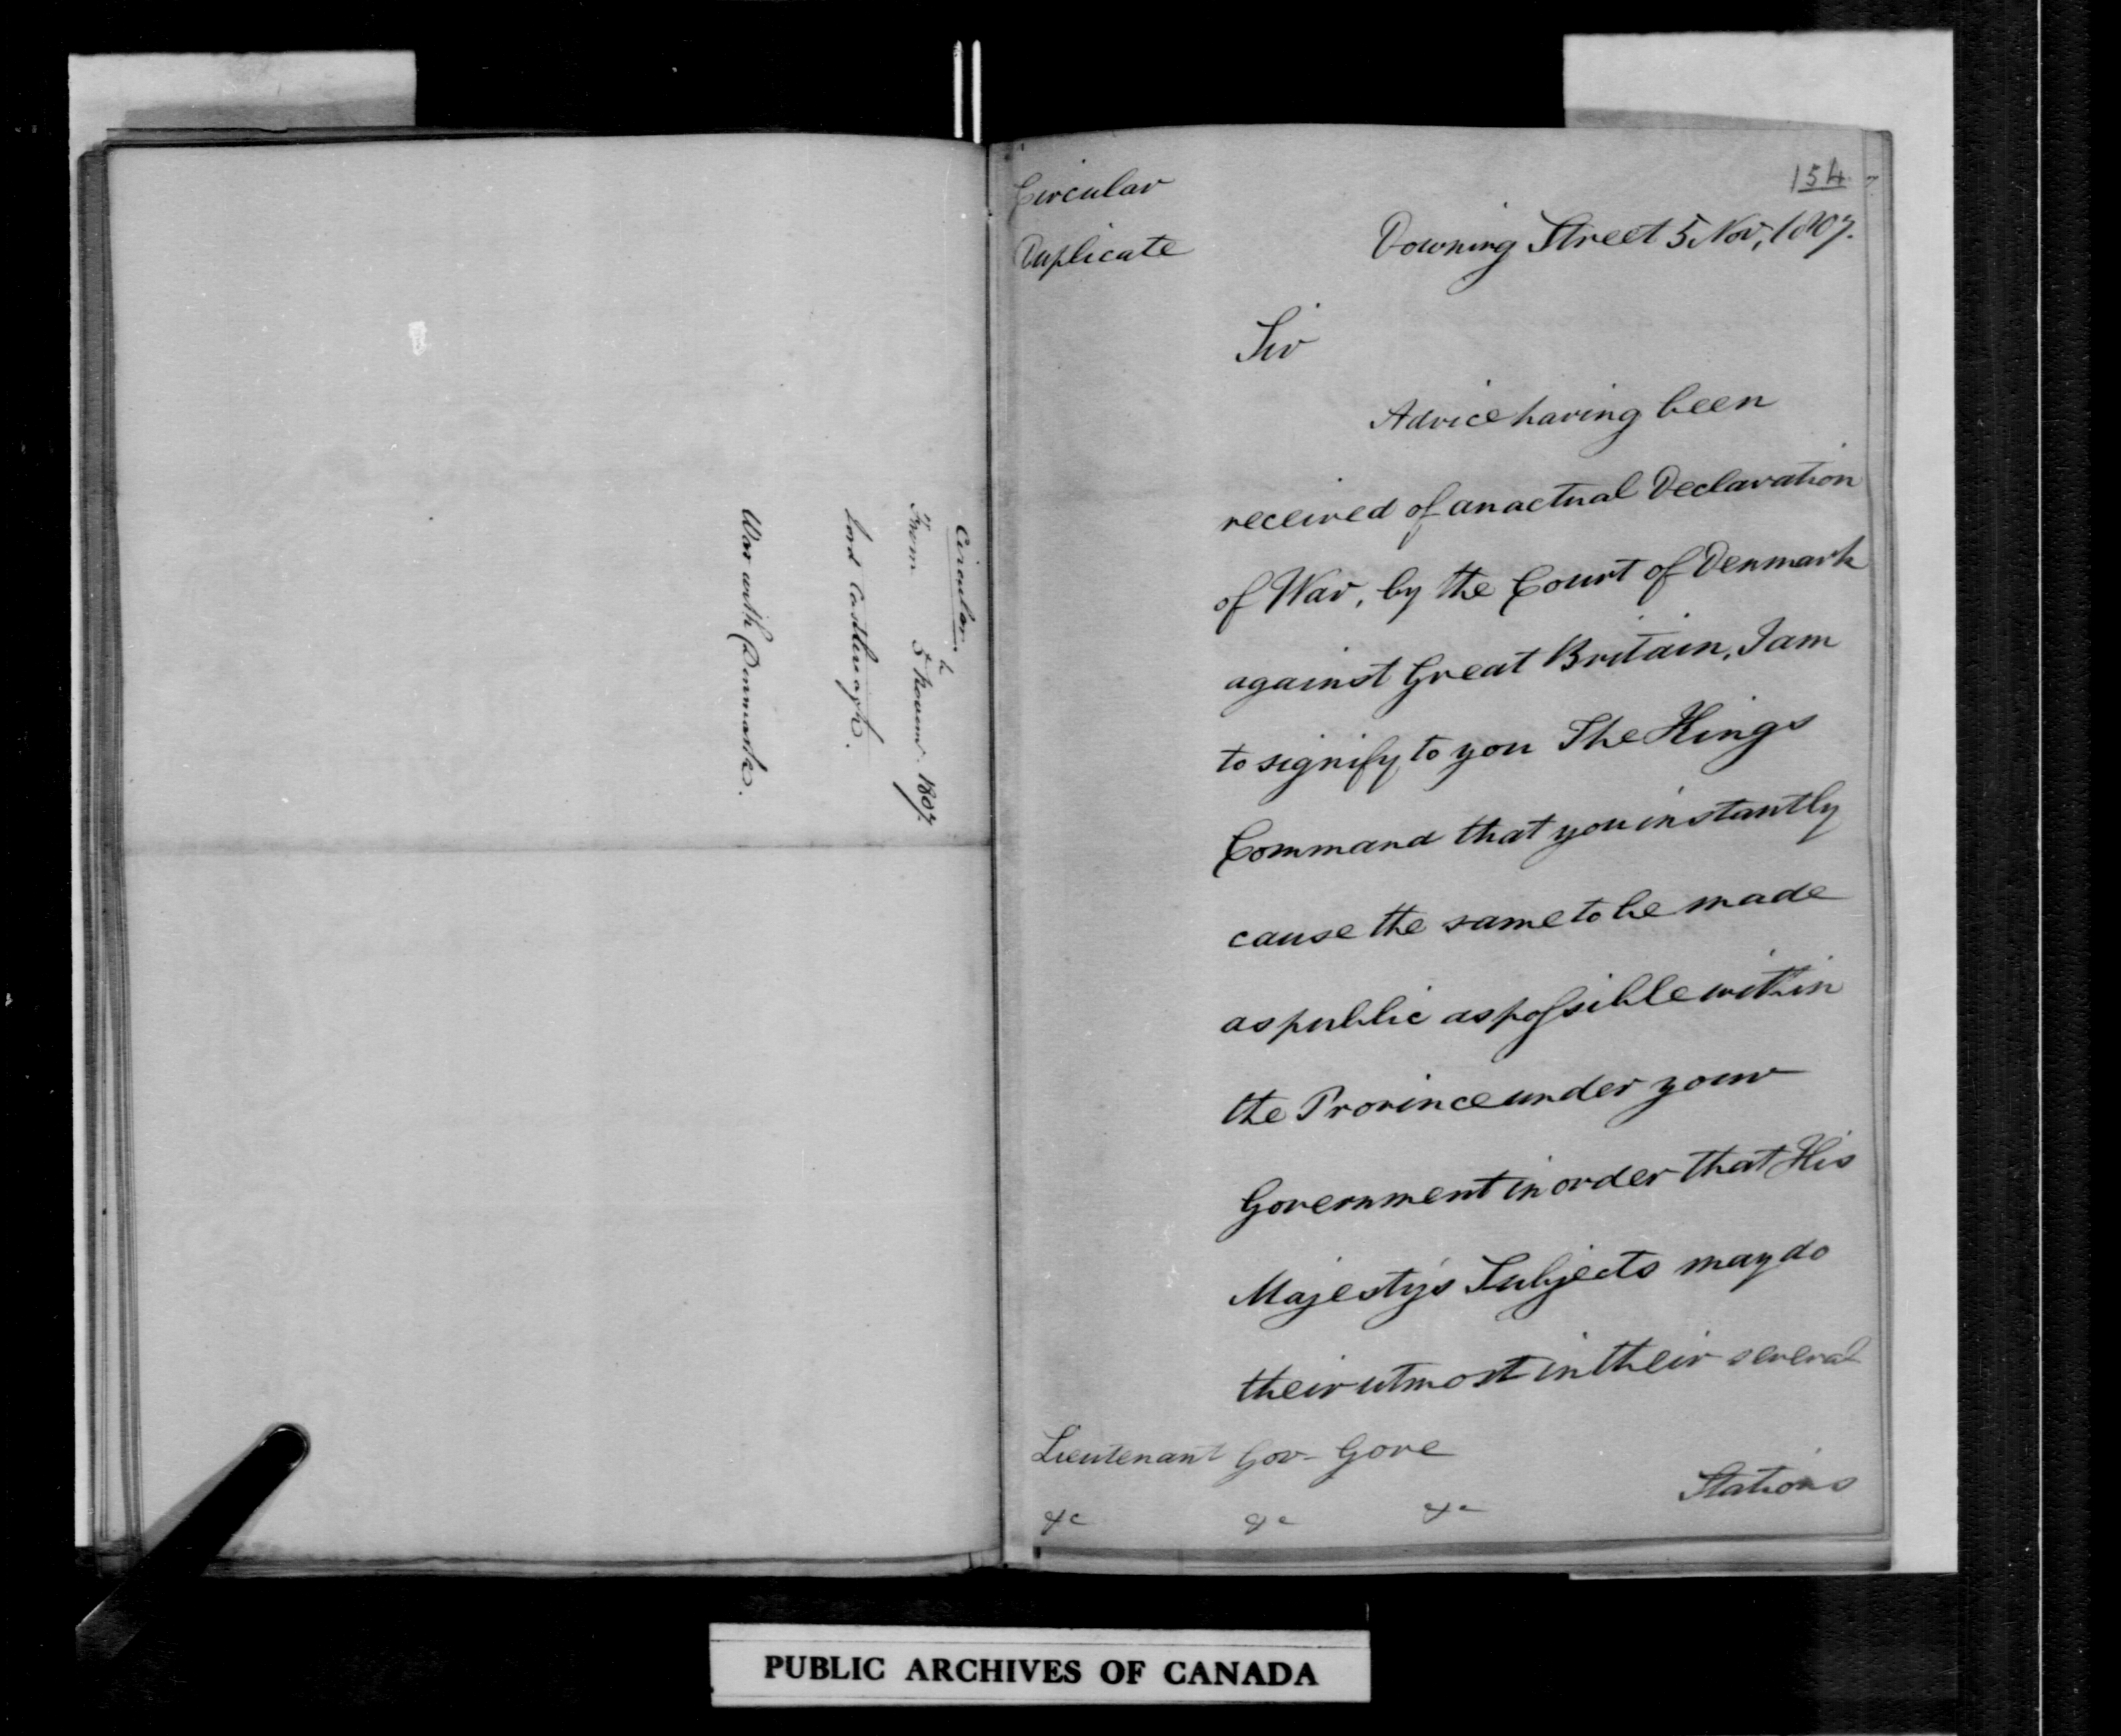 Circular
From 5th Novemr. 1807.
Lord Castlereagh.
War with Denmark.
154
Circular
Duplicate
Downing Street 5 Nov, 1807.
Sir
Advice having been
received of an actual Declaration
of War, by the Court of Denmark
against Great Britain, I am
to signify to you The Kings
Command that you instantly
cause the same to be made
as public as possible within
the Province under your
Government in order that His
Majesty's Subjects may do
their utmost in their several
Lieutenant Gov- Gore
Stations
&c &c &c
PUBLIC ARCHIVES OF CANADA